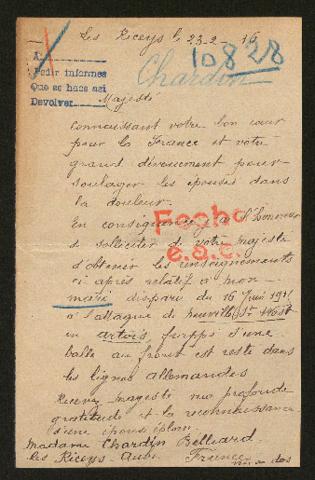 Les Riceys le 23-2-16
10828
Chardin
A
Pedir informes
Que se hace así
Devolver
Majesté
connaissant votre bon cœur
pour la France et votre
grand dévouement pour
soulager les épouses dans
la douleur.
En conséquence j'ai l'honneur
de solliciter de votre majesté
d'obtenir les renseignements
ci après relatif à mon
mari disparu du 16 Juin 191
à l'attaque de neuville St Vaast
en artois, frappé d'une
balle au front est resté dans
les lignes allemandes
Recevez majesté ma profonde
gratitude et la reconnaissance
d'une épouse
Madame Chardin Belliard.
Les Riceys-Aube France
Fecho